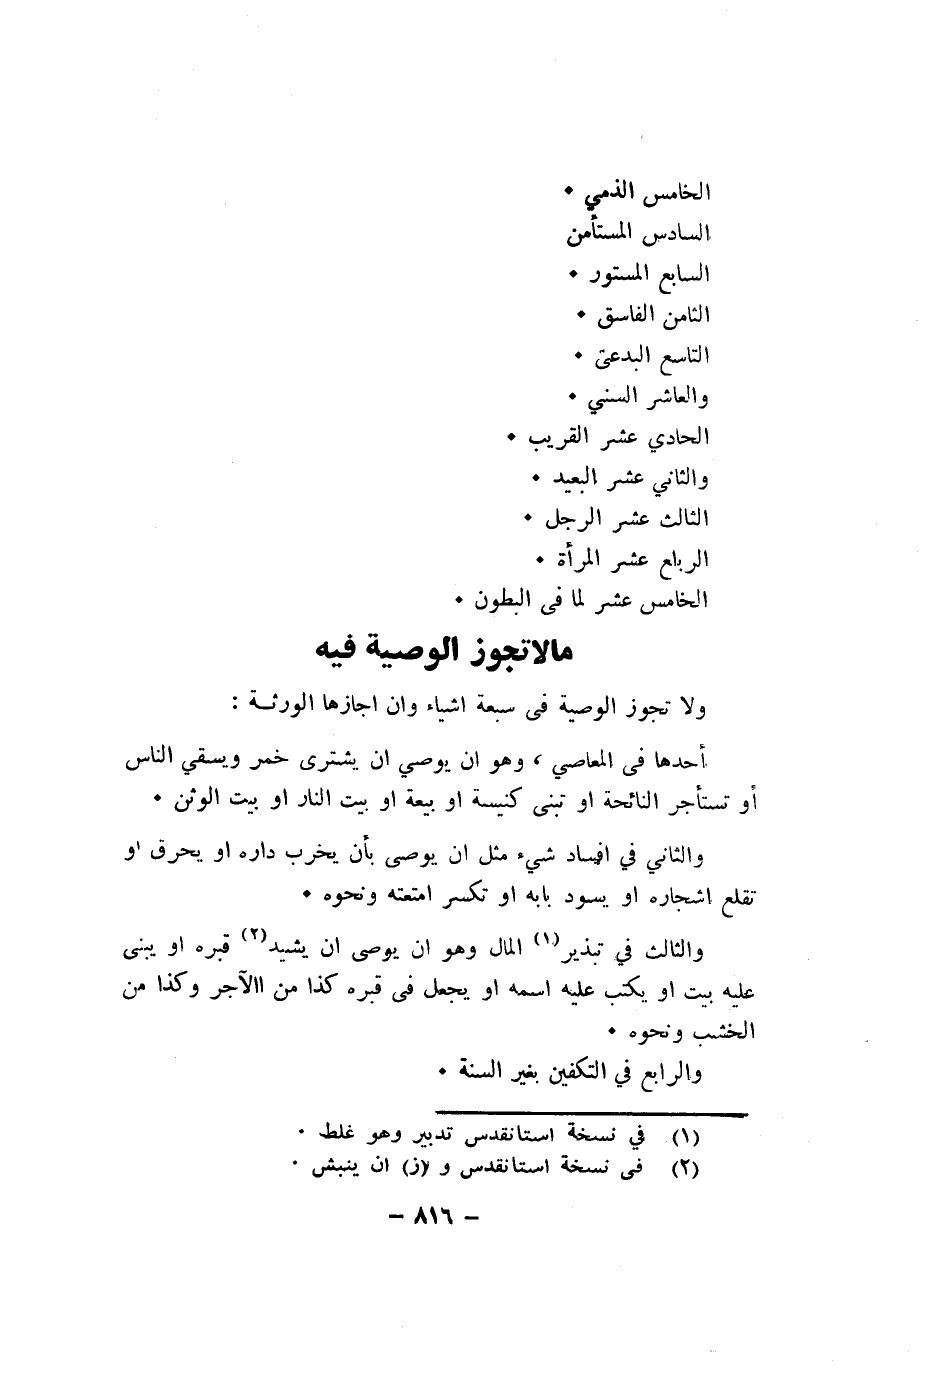 الخامس الذمي .
السادس المستأمن
السابع المستور .
الثامن الفاسق .
التاسع البدعى .
والعاشر السني .
الحادي عشر القريب .
والثاني عشر البعيد .
الثالث عشر الرجل .
الرابع عشر المرأة .
الخامس عشر لما فى البطون .
مالاتجوز الوصية فيه
ولا تجوز الوصية فى سبعة اشياء وان اجازها الورثة :
أحدها فى المعاصي ، وهو ان يوصي ان يشترى خمر ويسقي الناس
أو تستأجر النائحة او تبنى كنيسة او بيعة او بيت النار او بيت الوثن .
والثاني في افساد شيء مثل ان يوصى بأن يخرب داره او يحرق او
تقلع اشجاره او يسود بابه او تكسر امتعته ونحوه .
والثالث في تبذير(١) المال وهو ان يوصى ان يشيد(٢) قبره او يبنى
عليه بيت او يكتب عليه اسمه او يجعل فى قبره كذا من االآجر وكذا من
الخشب ونحوه .
والرابع في التكفين بغير السنة .
(١) في نسخة استانقدس تدبير وهو غلط .
(٢) فى نسخة استانقدس و (ز) ان ينبش .
– ٨١٦ –